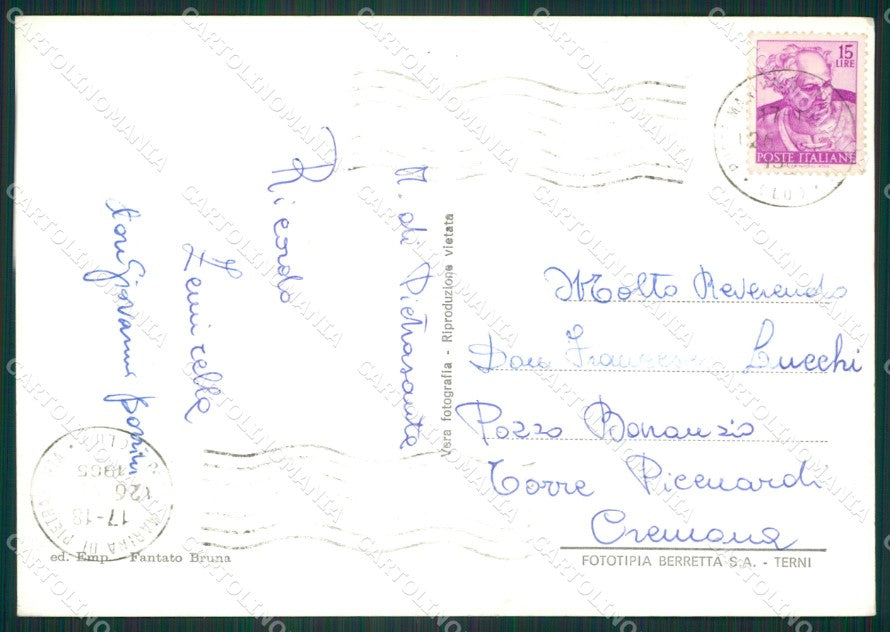 15
LIRE
POSTE ITALIANE
M. di Pietrasanta
Ricordo
don Giovanni
Vera fotografia - Riproduzione vietata
Molto Reverendo
Don Francesco Lucchi
Pozzo Bonanzio
Torre Picenardi
Cremona
MARINA DI PIETRA
17-18
126
1965
ed. Emp. - Fantato Bruna
FOTOTIPIA BERRETTA S.A. - TERNI
CARTOLINOMANIA